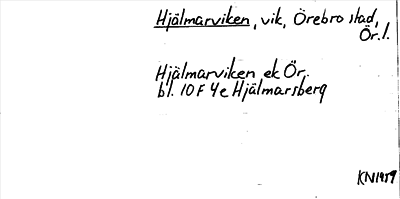 Hjälmarviken, vik, Örebro stad,
Ör. l.
Hjälmarviken ek Ör.
bl. 10 F 4 e Hjälmarsberg
KN1959